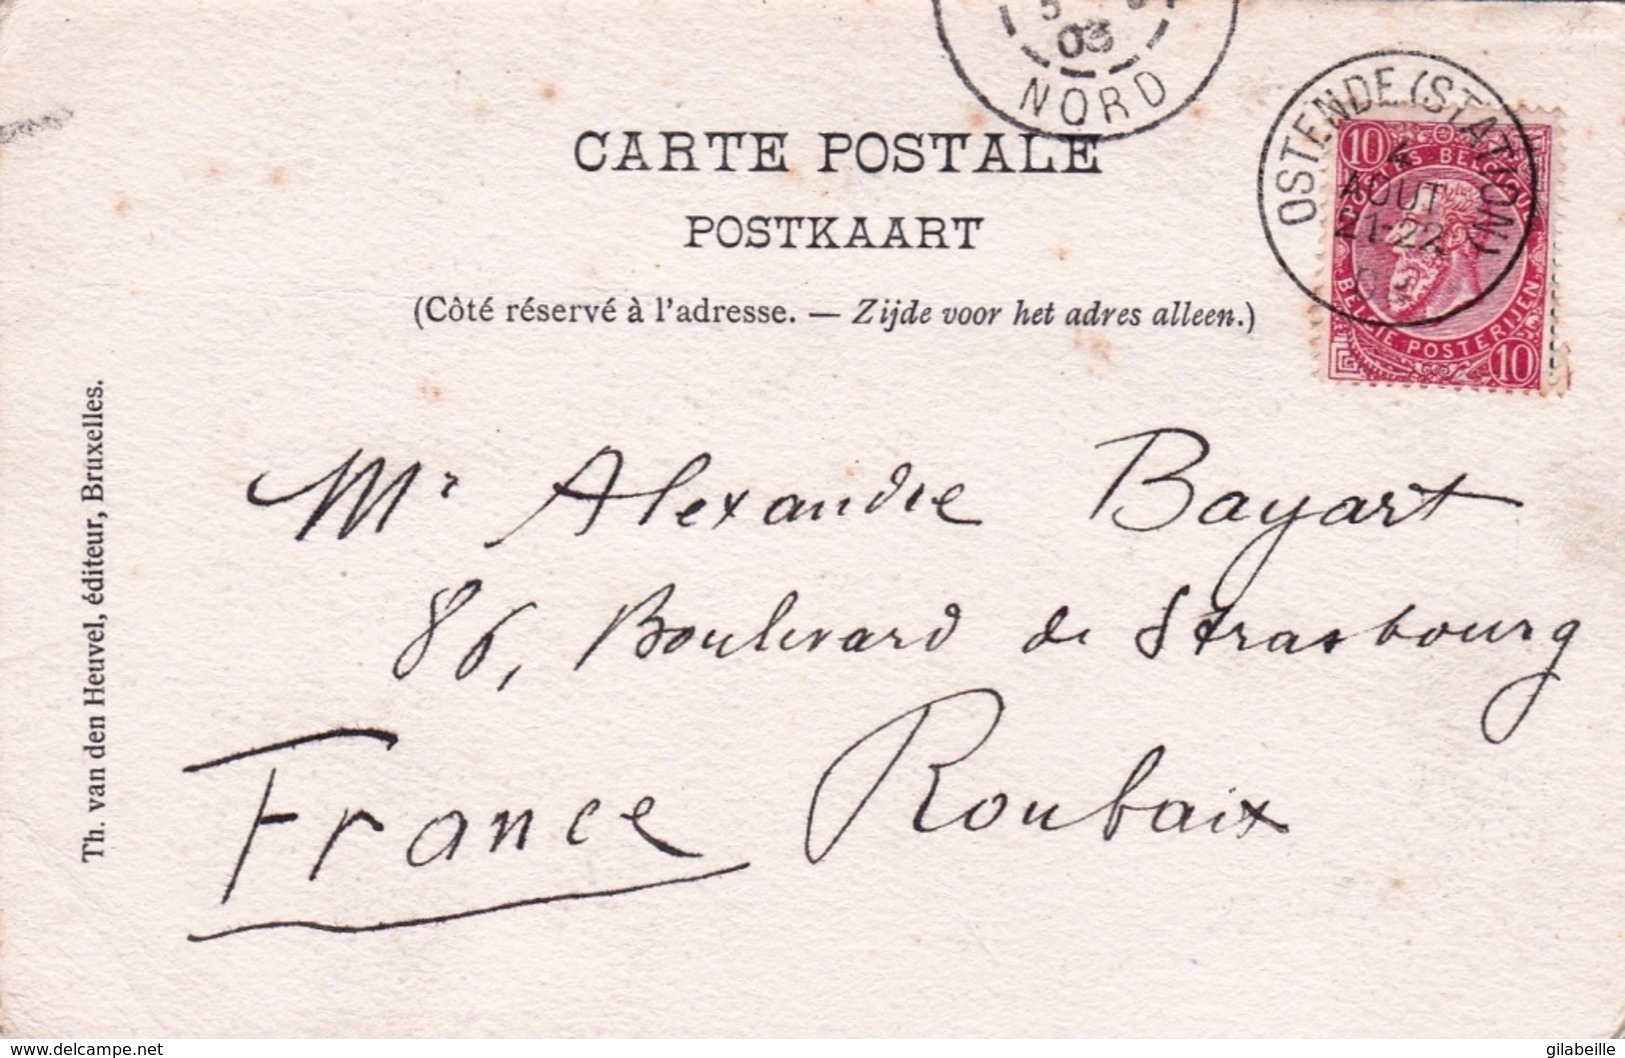 03
NORD
OSTENDE (STATION)
AOUT
21-22
10
BELGIE POSTERIJEN
10
CARTE POSTALE
POSTKAART
(Côté réservé à l'adresse. — Zijde voor het adres alleen.)
Th. van den Heuvel, éditeur, Bruxelles.
Mr Alexandre Bayart
86, Boulevard de Strasbourg
Roubaix
France
www.delcampe.net
gilabeille